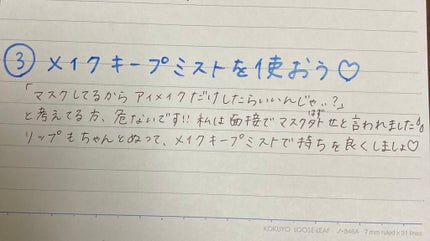 ③ メイクキープミストを使おう♡
「マスクしてるからアイメイクだけしたらいいんじゃ..?」
と考えてる方、危ないです!! 私は面接でマスク外せと言われました
はず
リップもちゃんとぬって、メイクキープミストで持ちを良くしましょ♡
KOKUYO LOOSE-LEAF ノ-836A 7 mm ruled × 31 lines